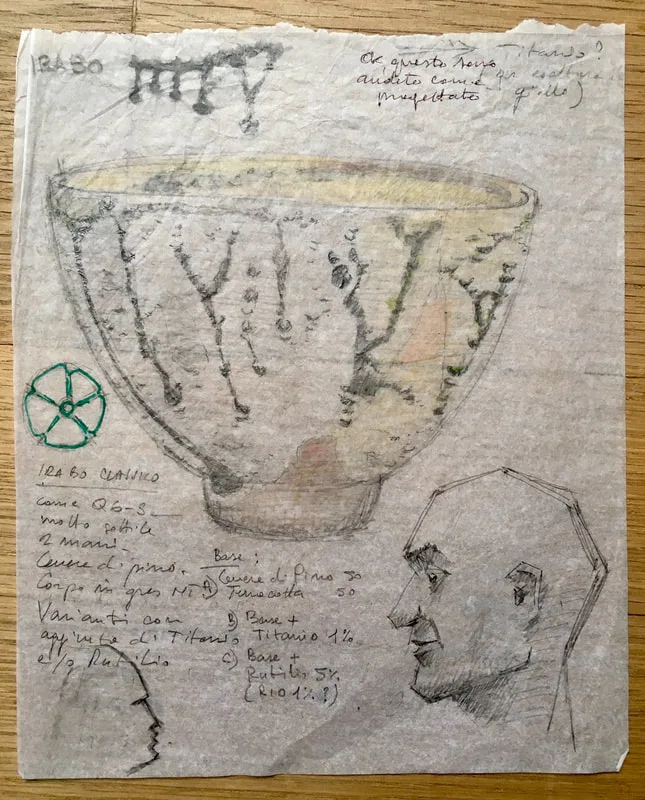 IRABO
Titanio?
Ok questo sono
andato come
progettato
IRABO CLASSICO
come Q6-S
molto sottile
2 mani
Cenere di pino.
Corpo in gres MT
Varianti con
aggiunte di Titanio
e/o Rutilio
Base:
A) Cenere di Pino 50
Terracotta 50
B) Base +
Titanio 1%
C) Base +
Rutilio 5%
(RIO 1% ?)